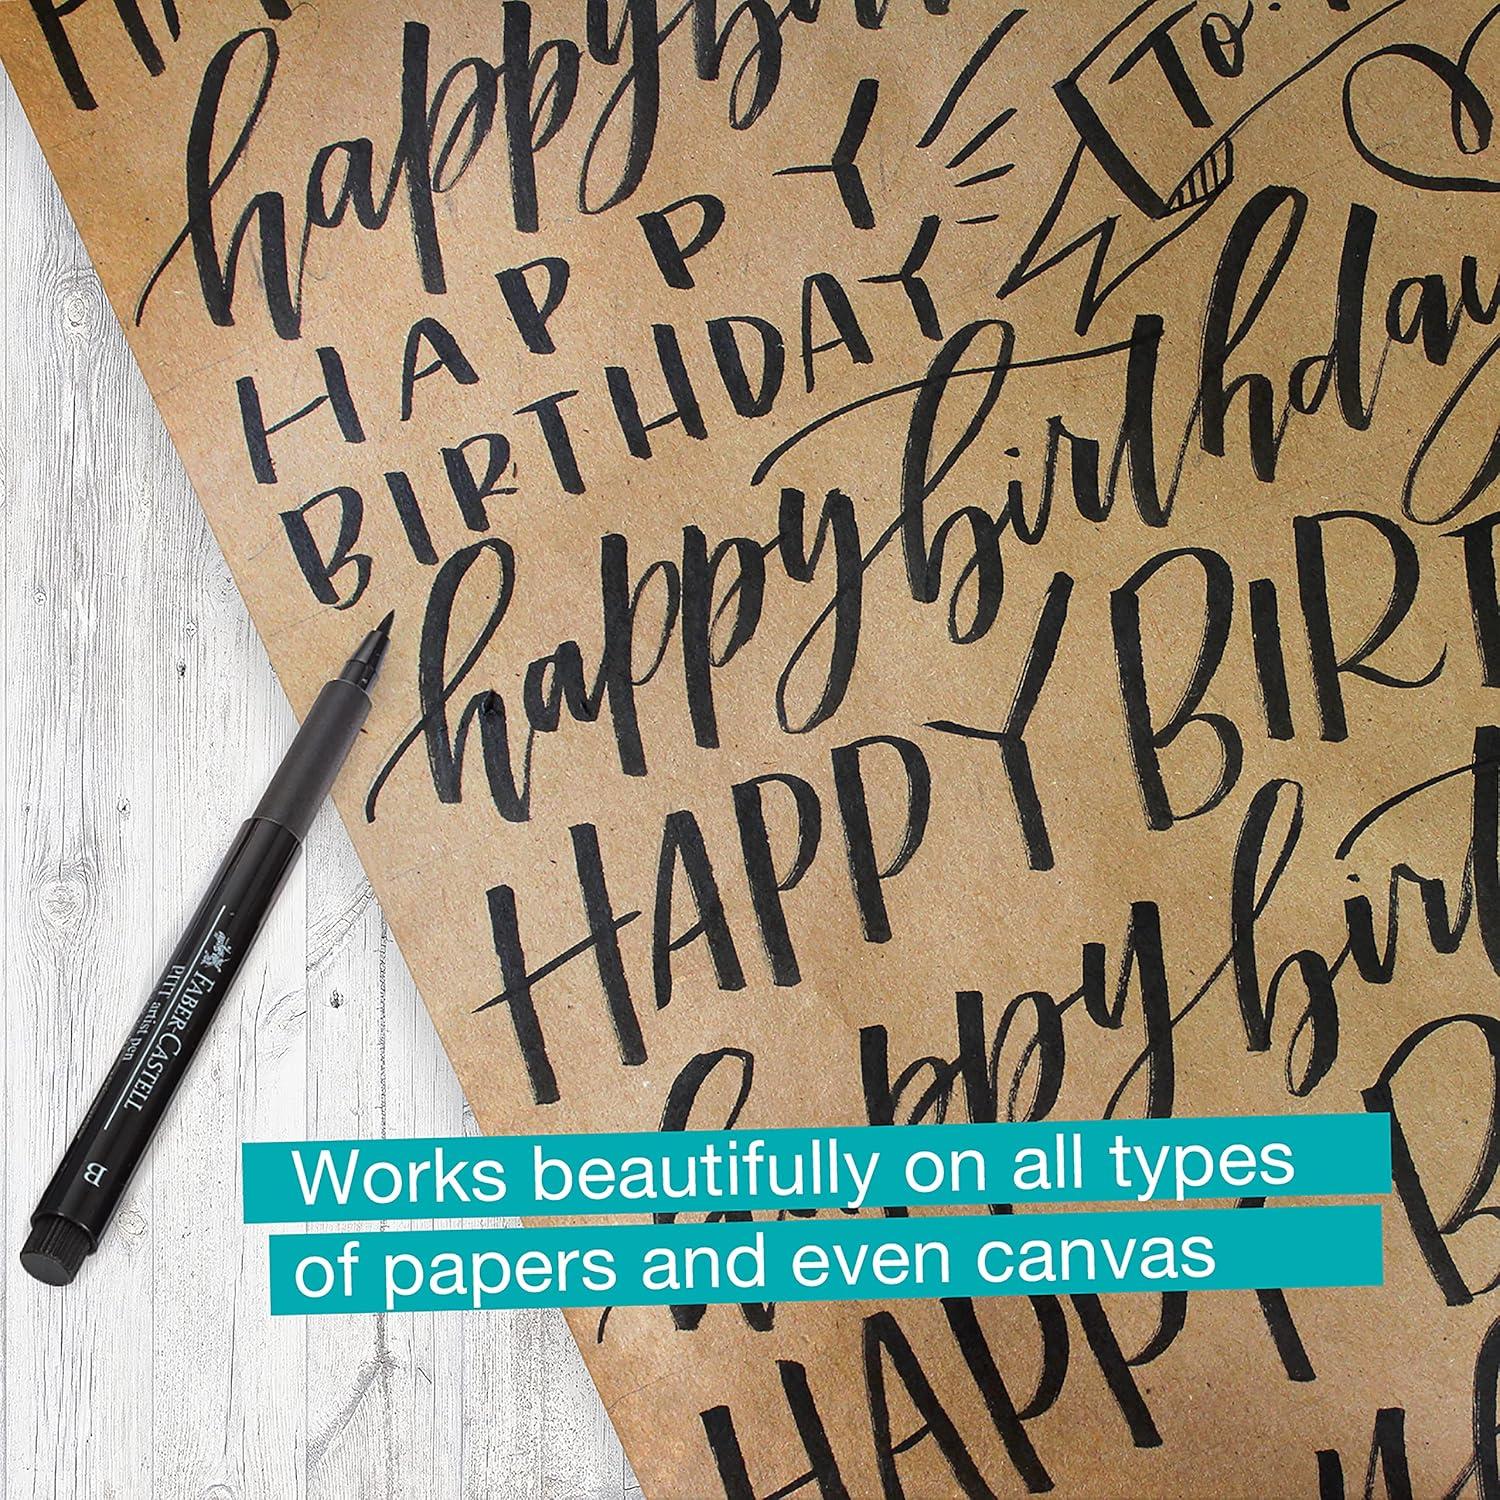 HA
happy bi
To:
HAPPY
BIRTHDAY
happy birthday
HAPPY BIRT
happy birt
HAPPY B
Works beautifully on all types
of papers and even canvas
FABER-CASTELL
PITT artist pen
B